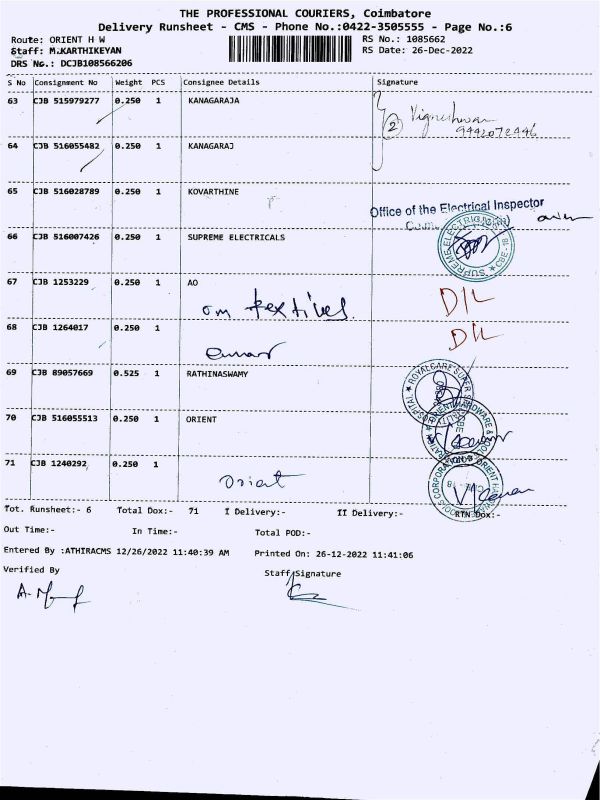 THE PROFESSIONAL COURIERS, Coimbatore
Delivery Runsheet - CMS - Phone No.:0422-3505555 - Page No.:6
Route: ORIENT H W RS No.: 1085662
Staff: M.KARTHIKEYAN RS Date: 26-Dec-2022
DRS No.: DCJB108566206
S No Consignment No Weight PCS Consignee Details Signature
63 CJB 515979277 0.250 1 KANAGARAJA
2 Vigneshwar
9442072446
64 CJB 516055482 0.250 1 KANAGARAJ
65 CJB 516028789 0.250 1 KOVARTHINE
Office of the Electrical Inspector
66 CJB 516007426 0.250 1 SUPREME ELECTRICALS
SUPREME ELECTRICALS CBE-18
67 CJB 1253229 0.250 1 AO D/L
om textiles
68 CJB 1264017 0.250 1 D/L
69 CJB 89057669 0.525 1 RATHINASWAMY
70 CJB 516055513 0.250 1 ORIENT
71 CJB 1240292 0.250 1
Orient
Tot. Runsheet:- 6 Total Dox:- 71 I Delivery:- II Delivery:- RTN Dox:-
Out Time:- In Time:- Total POD:-
Entered By :ATHIRACMS 12/26/2022 11:40:39 AM Printed On: 26-12-2022 11:41:06
Verified By Staff Signature